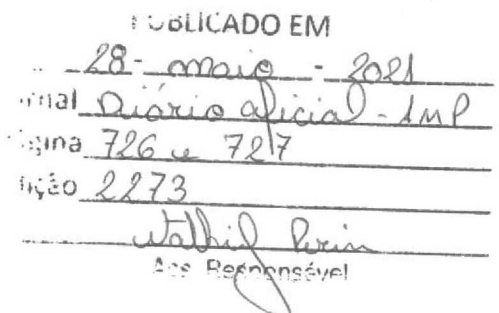 PUBLICADO EM
28 - maio - 2021
Diário Oficial - AMP
726 e 727
2273
Ass. Responsável